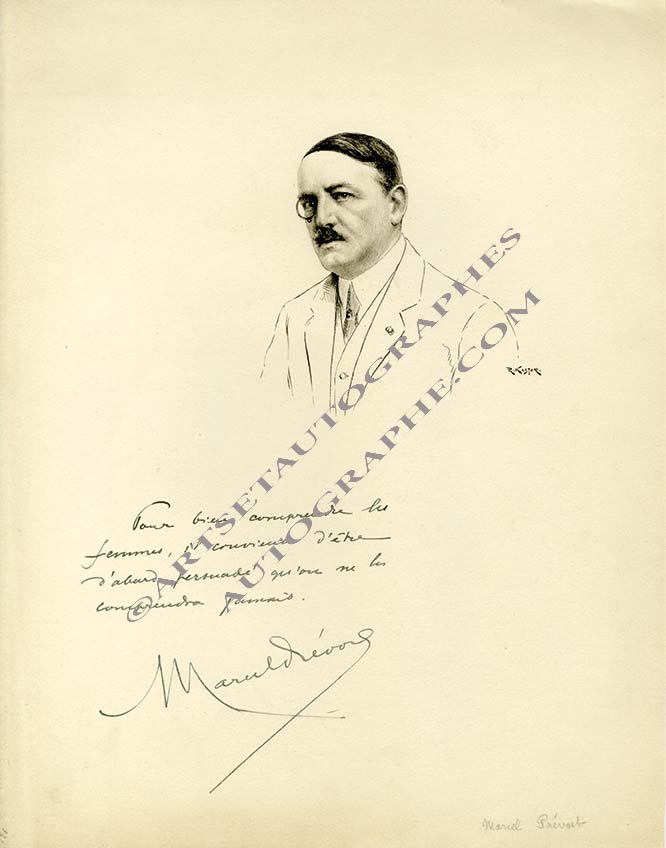 © ARTSETAUTOGRAPHES
AUTOGRAPHE.COM
Pour bien comprendre les
femmes, il convient d'être
d'abord persuadé qu'on ne les
comprendra jamais.
Marcel Prévost
Marcel Prévost